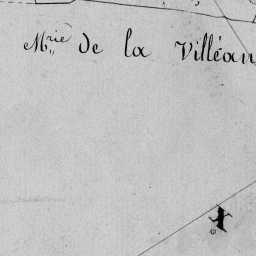 Mrie de la Villéan